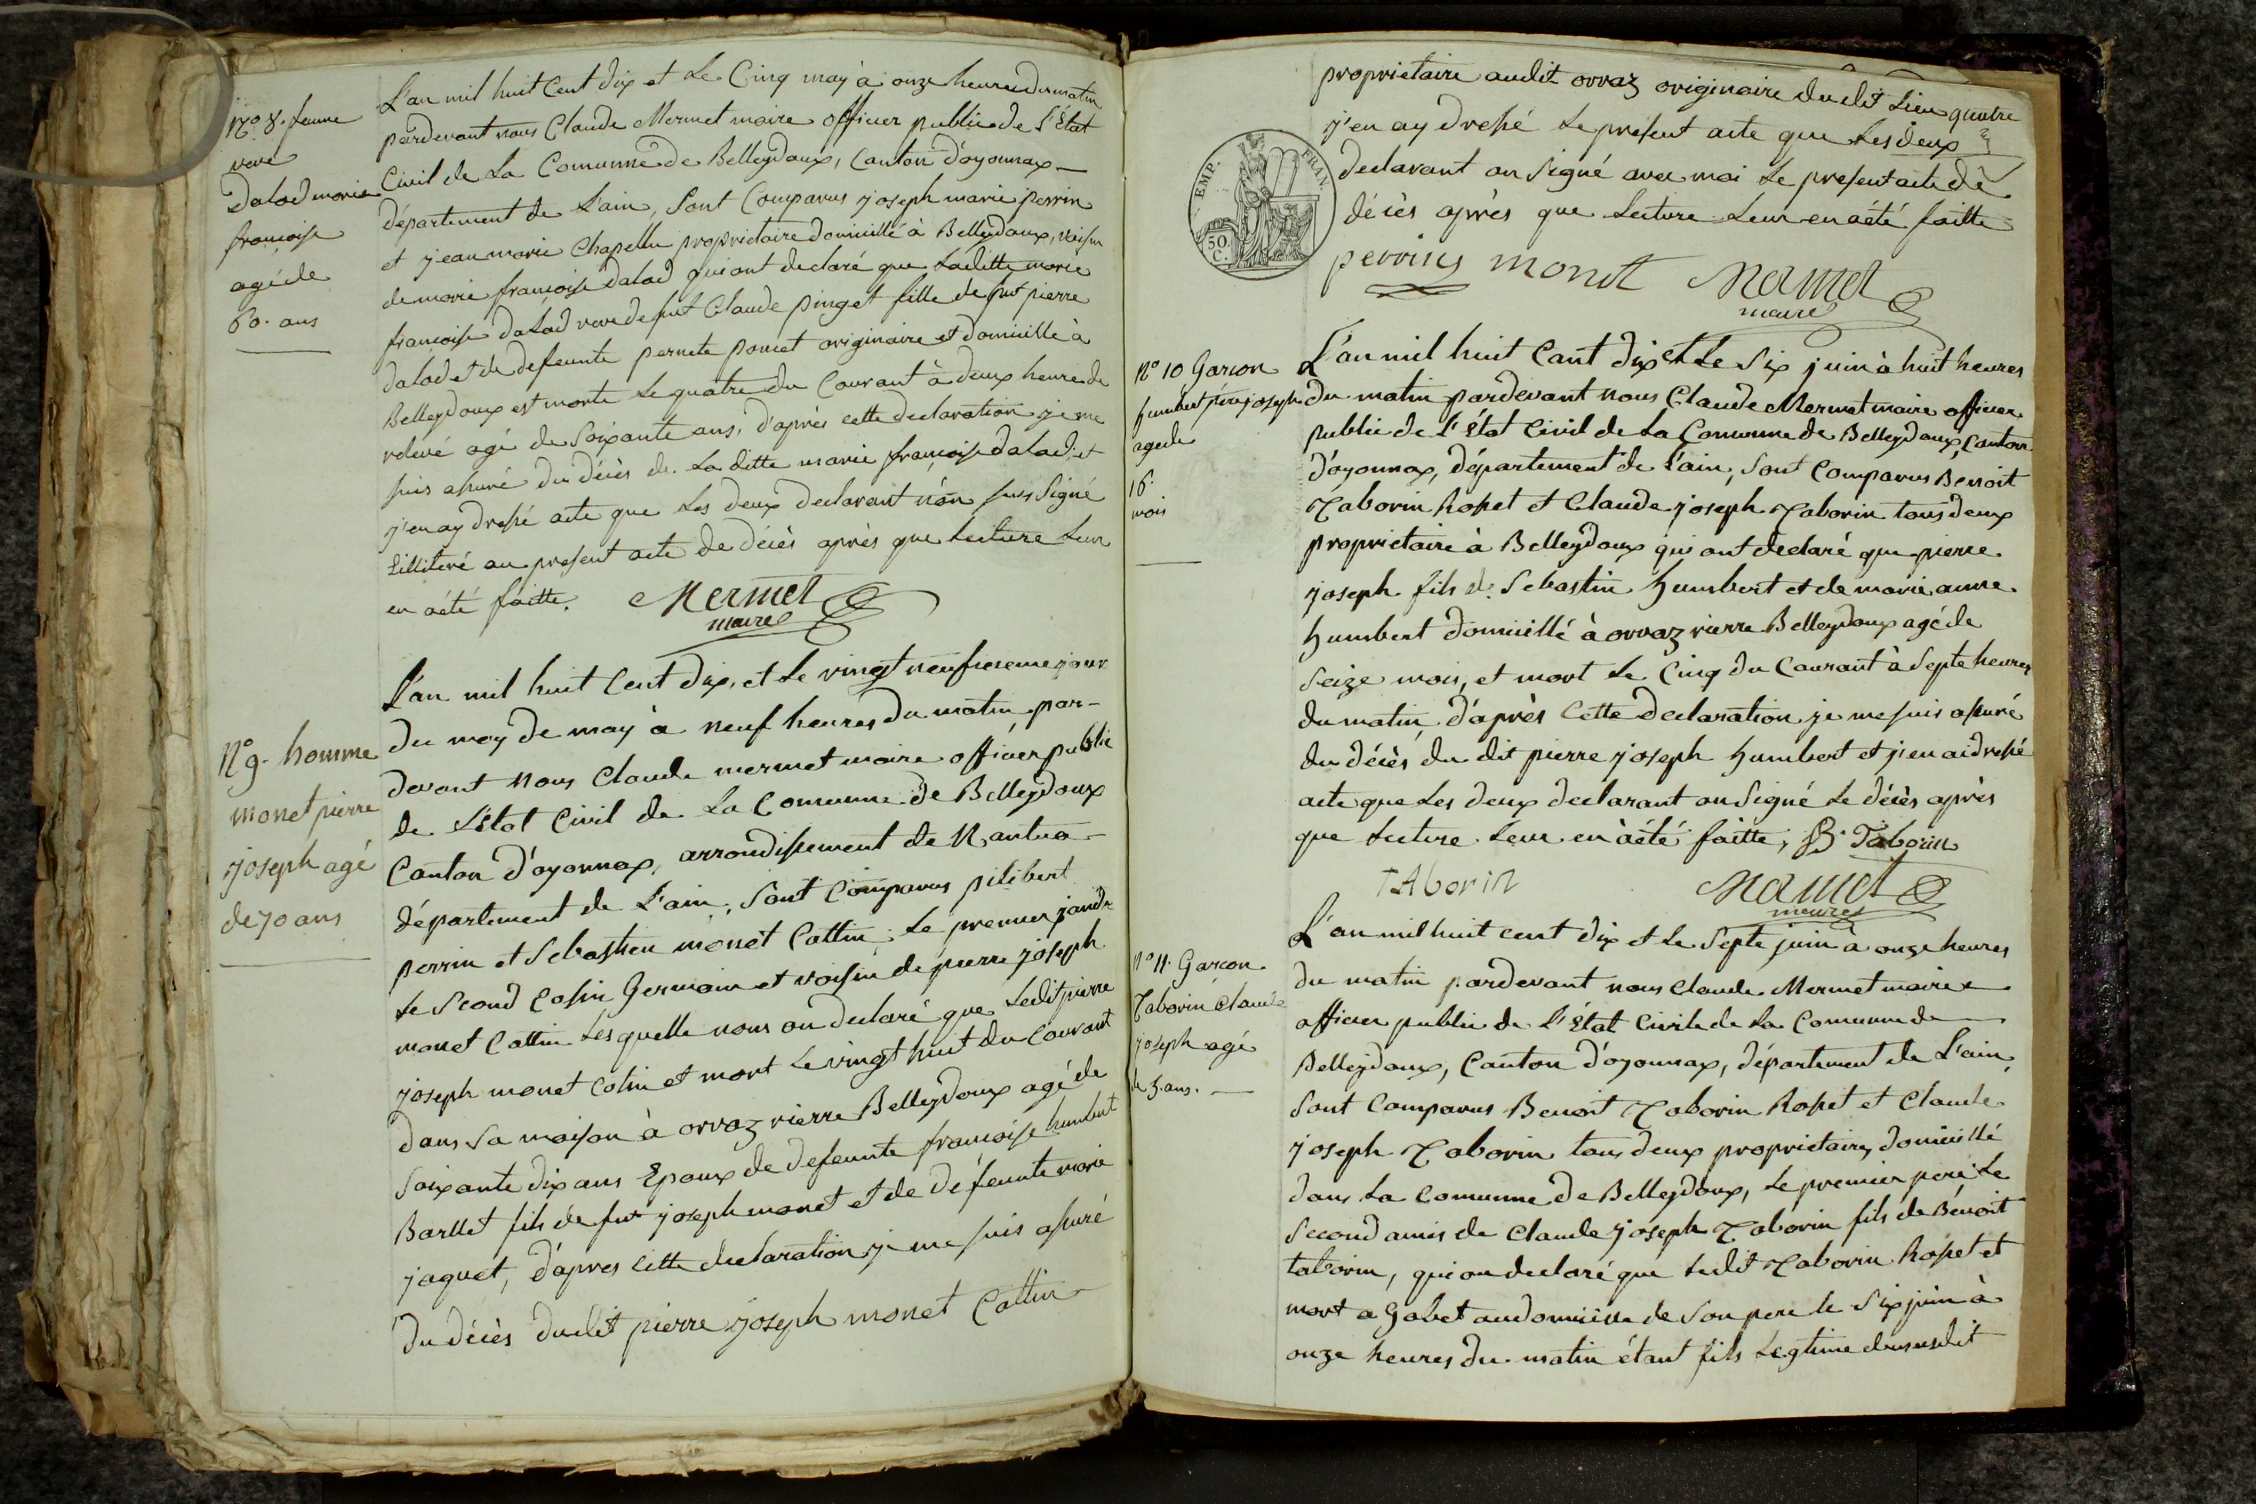 N.o 8. femme
veve
Dalod marie
françoise
agé de
60. ans
L'an mil huit Cent dix et Le Cinq may à onze heures du matin
pardevant nous Claude Mermet maire officier public de L'État
Civil de La Comunne de Belleydoux, Canton d'oyonnax
département de L'ain, Sont Comparus joseph marie perrin
et jean marie Chapellu proprietaire domicillé à Belleydoux, voisin
de marie françoise Dalod qui ont declaré que Laditte marie
françoise Dalod veve de fut Claude pinget fille de fut pierre
Dalod et de defeunte pernete poncet originaire et domicille à
Belleydoux est morte Le quatre du Courant à deux heure de
relevé agé de Soixante ans, d'après cette declaration je me
suis assuré du décès de La ditte marie françoise Dalod et
j'en ay dressé acte que Les deux declarant n'on pus Signé
illiteré au present acte de décès après que Lecture Leur
en a été faitte. Mermet
maire
N.o 9. homme
monet pierre
joseph agé
de 70 ans
L'an mil huit Cent dix, et Le vingt neufvieme jour
du moy de may à neuf heures du matin par-
devant nous Claude mermet maire officier public
de L'État Civil de La Comunne de Belleydoux
Canton d'oyonnax, arrondissement de Nantua
département de L'ain, Sont Comparus pilibert
perrin et Sebastien monet Cattin Le premier jandre
Le Second Cosin Germain et voisin de pierre joseph
monet Cattin Les quelle nous on declaré que Ledit pierre
joseph monet Cotin et mort Le vingt huit du Courant
dans Sa maison à orvaz rierre Belleydoux agé de
Soixante dix ans Epoux de defeunte françoise humbert
Barllet fils de fut joseph monet et de défeunte marie
jaquet, d'apres cette declaration je me suis assuré
du décès dudit pierre joseph monet Cattin
proprietaire audit orvaz originaire dudit Lieu quatre
j'en ay dressé Le present acte que Les deux
declarant on Signé avec moi Le present acte de
décès après que Lecture Leur en a été faitte
EMP. FRAN.
50.
C.
perrin monet Mermet
maire
N.o 10 Garcon
humbert pierre joseph
age de
16.
mois
L'an mil huit Cant dix et Le Six juin à huit heures
du matin pardevant nous Claude Mermet maire officier
public de L'État Civil de La Comunne de Belleydoux, Canton
d'oyonnax, département de L'ain, Sont Comparus Benoit
Taborin Rosset et Claude joseph Taborin tous deux
proprietaire à Belleydoux qui ont declaré que pierre
joseph fils de Sebastin humbert et de marie anne
humbert domicillé à orvaz rierre Belleydoux agé de
Seize mois, et mort Le Cinq du Courant à Septe heures
du matin, d'après Cette declaration je me suis assuré
du décès du dit pierre joseph humbert et j'en ai dressé
acte que Les deux declarant on Signé Le décès après
que Lecture Leur en à été faitte, B. Taborin
TAborin Mermet
maire
N.o 11. Garcon
Taborin Claude
joseph agé
de 3. ans.
L'an mil huit cent dix et Le Septe juin à onze heures
du matin pardevant nous Claude Mermet maire
officier public de L'État Civile de La Comunne de
Belleydoux, Canton d'oyonnax, département de L'ain,
Sont Comparus Benoit Taborin Rosset et Claude
joseph Taborin tous deux proprietaires domicillé
dans La Comunne de Belleydoux, Le premier pere Le
Second amis de Claude joseph Taborin fils de Bénoit
taborin, qui on declaré que Ledit Taborin Rosset et
mort a Gobet au domicille de Son pere le Six juin à
onze heures du matin étant fils Legtime du susdit